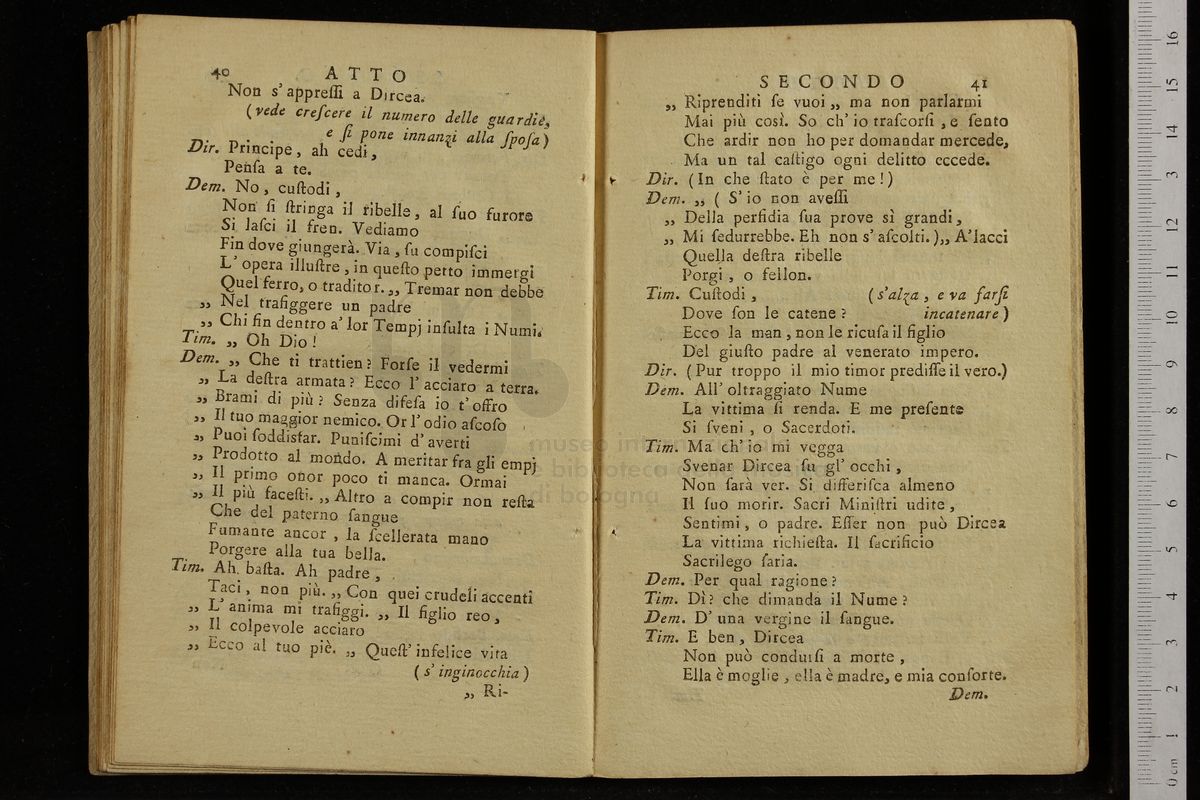 40 ATTO
Non s' appreſſi a Dircea.
(vede creſcere il numero delle guardie,
e ſi pone innanzi alla ſpoſa)
Dir. Principe, ah cedi,
Penſa a te.
Dem. No, cuſtodi,
Non ſi ſtringa il ribelle, al ſuo furore
Si laſci il fren. Vediamo
Fin dove giungerà. Via, ſu compiſci
L' opera illuſtre, in queſto petto immergi
Quel ferro, o traditor. „ Tremar non debbe
„ Nel trafiggere un padre
„ Chi fin dentro a' lor Tempj inſulta i Numi.
Tim. „ Oh Dio!
Dem. „ Che ti trattien? Forſe il vedermi
„ La deſtra armata? Ecco l' acciaro a terra.
„ Brami di più? Senza difeſa io t' offro
„ Il tuo maggior nemico. Or l' odio aſcoſo
„ Puoi ſoddisfar. Puniſcimi d' averti
„ Prodotto al mondo. A meritar fra gli empj
„ Il primo onor poco ti manca. Ormai
„ Il più faceſti. „ Altro a compir non reſta
Che del paterno ſangue
Fumante ancor, la ſcellerata mano
Porgere alla tua bella.
Tim. Ah. baſta. Ah padre,
Taci, non più. „ Con quei crudeli accenti
„ L' anima mi trafiggi. „ Il figlio reo,
„ Il colpevole acciaro
„ Ecco al tuo piè. „ Queſt' infelice vita
(s' inginocchia)
„ Ri-
SECONDO 41
„ Riprenditi ſe vuoi „ ma non parlarmi
Mai più così. So ch' io traſcorſi, e ſento
Che ardir non ho per domandar mercede,
Ma un tal caſtigo ogni delitto eccede.
Dir. (In che ſtato è per me!)
Dem. „ ( S' io non aveſſi
„ Della perfidia ſua prove sì grandi,
„ Mi ſedurrebbe. Eh non s' aſcolti.)„ A' lacci
Quella deſtra ribelle
Porgi, o fellon.
Tim. Cuſtodi, (s'alza, e va farſi
Dove ſon le catene? incatenare)
Ecco la man, non le ricuſa il figlio
Del giuſto padre al venerato impero.
Dir. (Pur troppo il mio timor prediſſe il vero.)
Dem. All' oltraggiato Nume
La vittima ſi renda. E me preſente
Si ſveni, o Sacerdoti.
Tim. Ma ch' io mi vegga
Svenar Dircea ſu gl' occhi,
Non ſarà ver. Si differiſca almeno
Il ſuo morir. Sacri Miniſtri udite,
Sentimi, o padre. Eſſer non può Dircea
La vittima richieſta. Il ſacrificio
Sacrilego ſaria.
Dem. Per qual ragione?
Tim. Dì? che dimanda il Nume?
Dem. D' una vergine il ſangue.
Tim. E ben, Dircea
Non può condurſi a morte,
Ella è moglie, ella è madre, e mia conſorte.
Dem.
museo internazionale
e biblioteca della musica
di bologna
0 cm 1 2 3 4 5 6 7 8 9 10 11 12 13 14 15 16